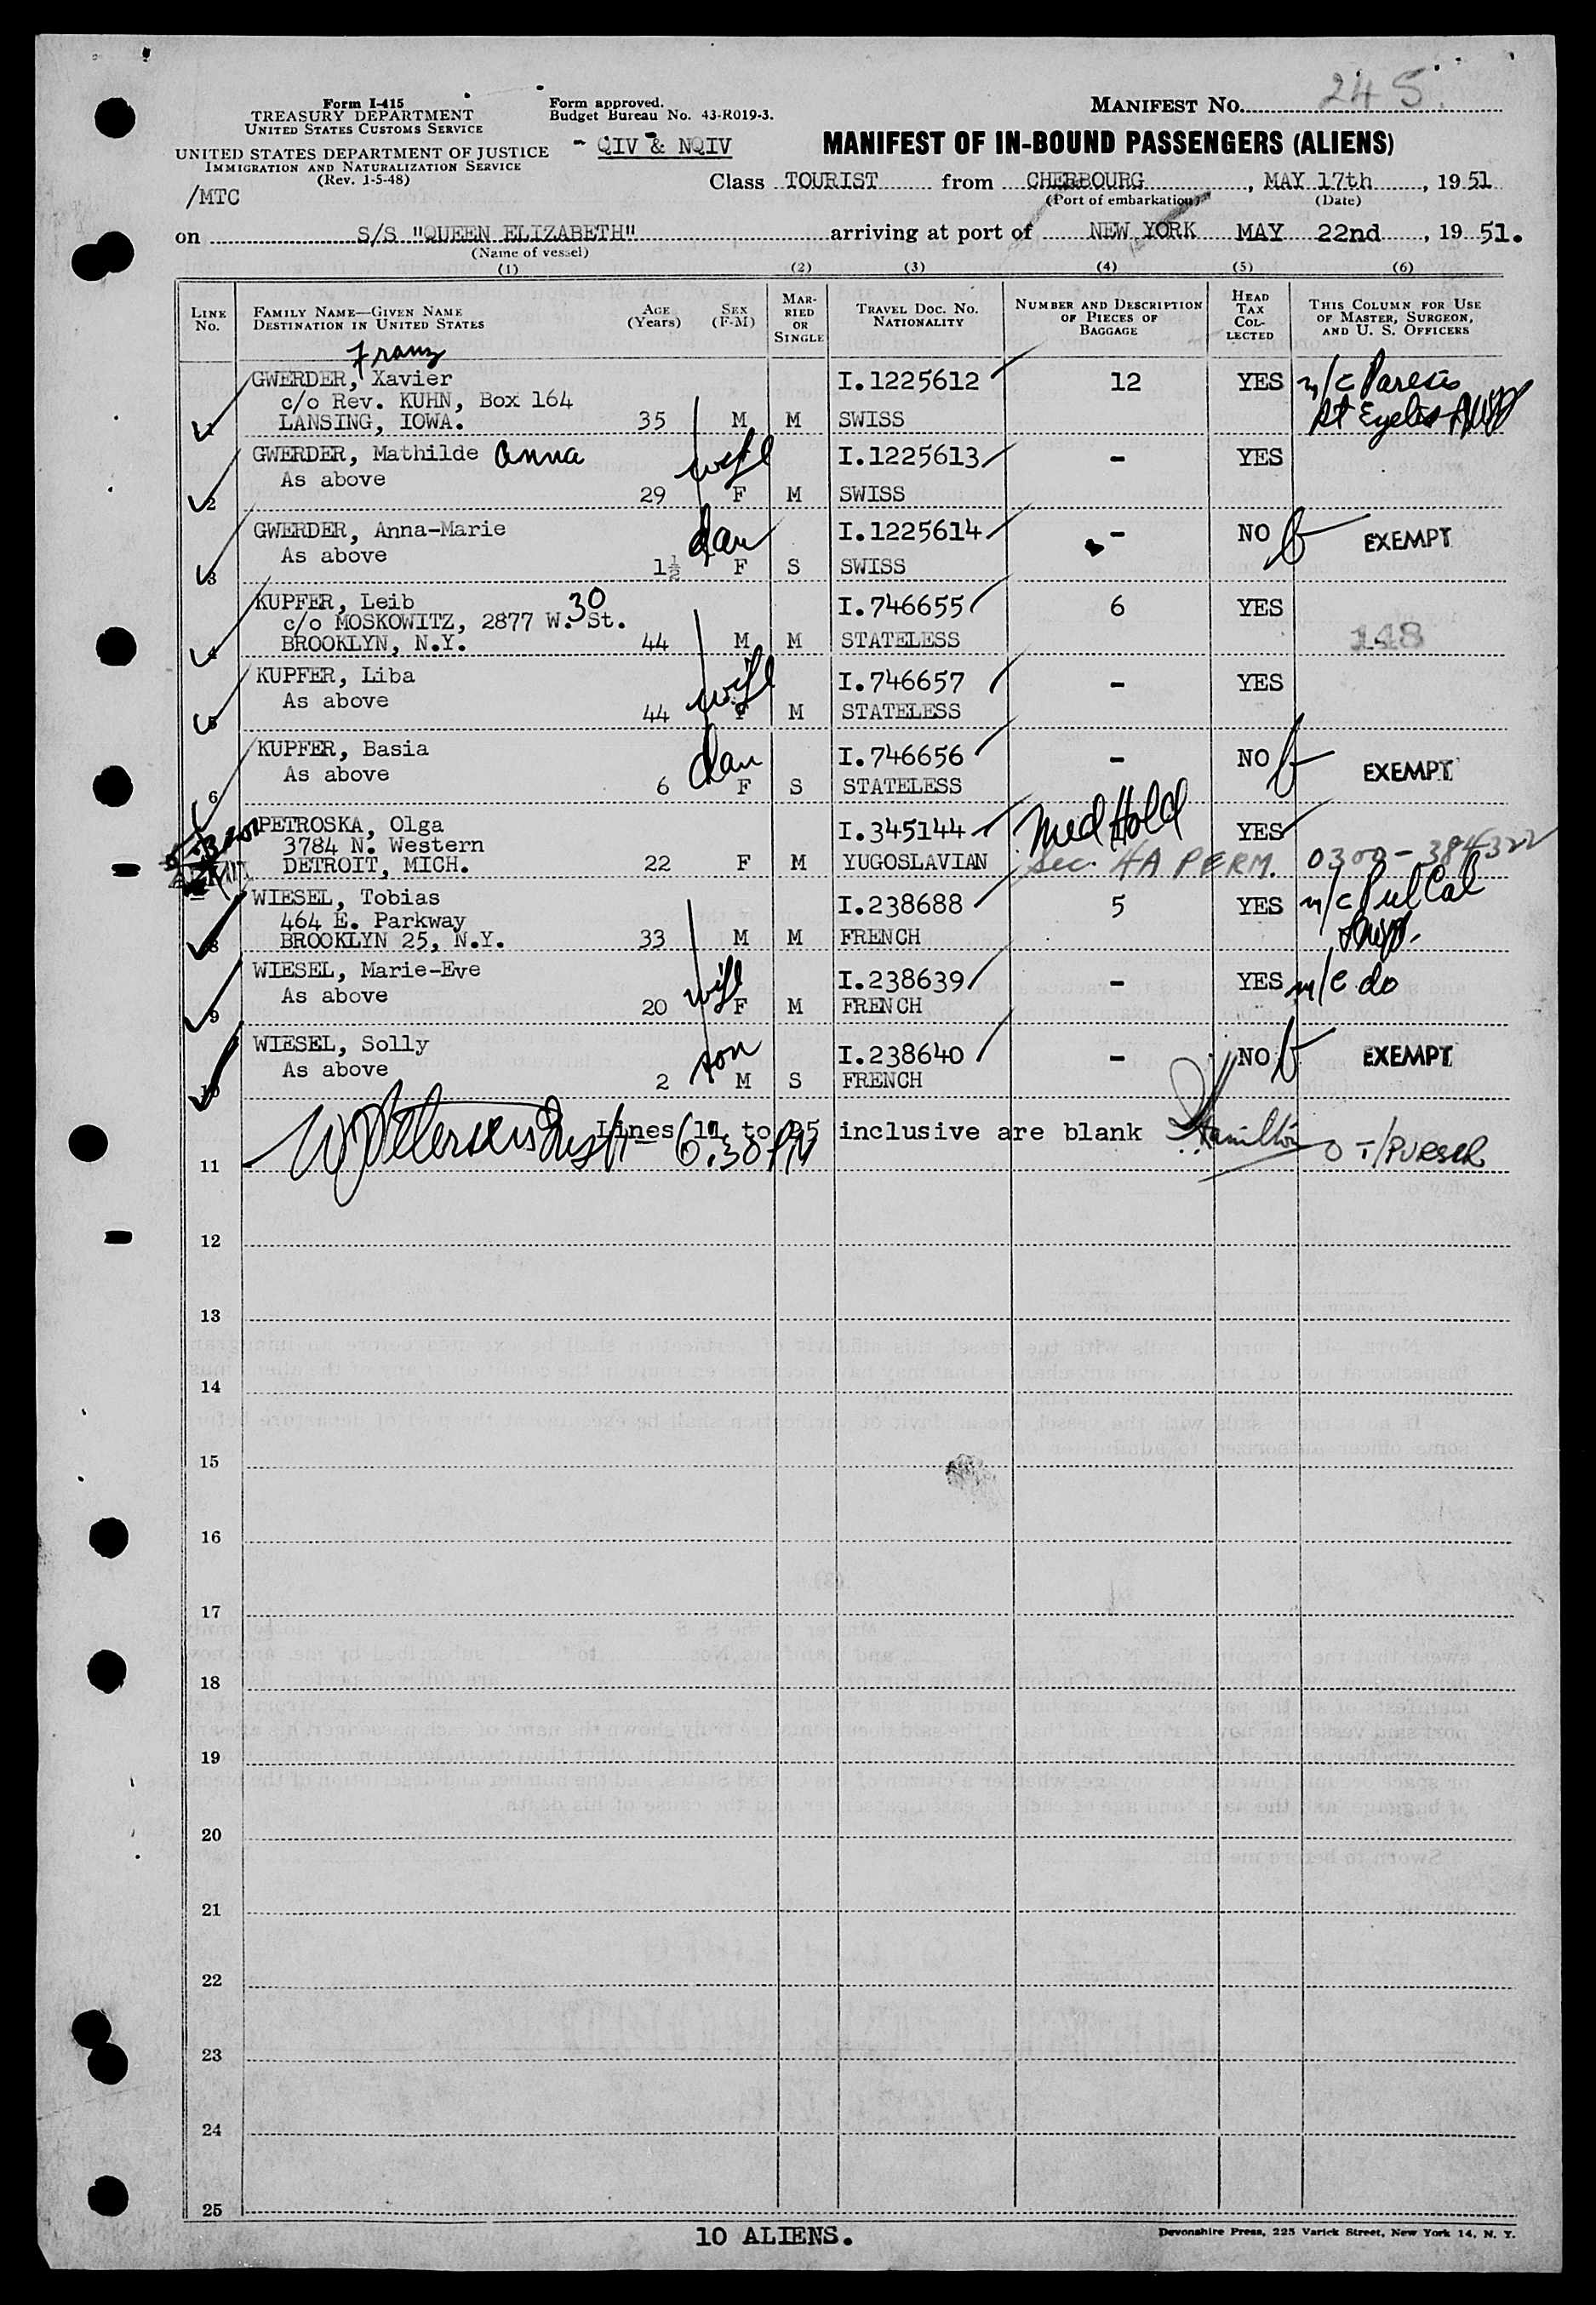 Form I-415
TREASURY DEPARTMENT
UNITED STATES CUSTOMS SERVICE
UNITED STATES DEPARTMENT OF JUSTICE
IMMIGRATION AND NATURALIZATION SERVICE
(Rev. 1-5-48)
/MTC
Form approved.
Budget Bureau No. 43-R019-3.
- QIV & NQIV
MANIFEST NO. 245
MANIFEST OF IN-BOUND PASSENGERS (ALIENS)
Class TOURIST from CHERBOURG, MAY 17th, 1951
(Port of embarkation) (Date)
on S/S "QUEEN ELIZABETH" arriving at port of NEW YORK MAY 22nd, 19 51.
(Name of vessel)
(1) (2) (3) (4) (5) (6)
LINE No. FAMILY NAME—GIVEN NAME DESTINATION IN UNITED STATES AGE (Years) SEX (F-M) MARRIED OR SINGLE TRAVEL DOC. NO. NATIONALITY NUMBER AND DESCRIPTION OF PIECES OF BAGGAGE HEAD TAX COLLECTED THIS COLUMN FOR USE OF MASTER, SURGEON, AND U. S. OFFICERS
Franz
GWERDER, Xavier I.1225612 12 YES m/c Paresis
c/o Rev. KUHN, Box 164
1 LANSING, IOWA. 35 M M SWISS Rt Eyelid
GWERDER, Mathilde Anna wife I.1225613 - YES
As above
2 29 F M SWISS
GWERDER, Anna-Marie dau I.1225614 - NO EXEMPT
As above
3 1½ F S SWISS
KUPFER, Leib I.746655 6 YES
c/o MOSKOWITZ, 2877 W. 30 St.
4 BROOKLYN, N.Y. 44 M M STATELESS 148
KUPFER, Liba wife I.746657 - YES
As above
5 44 F M STATELESS
KUPFER, Basia dau I.746656 - NO EXEMPT
As above
6 6 F S STATELESS
PETROSKA, Olga I.345144 Med Hold YES
3784 N. Western
DETROIT, MICH. 22 F M YUGOSLAVIAN Sec. 4A PERM. 0300-384322
WIESEL, Tobias I.238688 5 YES m/c Pul Cal
464 E. Parkway
8 BROOKLYN 25, N.Y. 33 M M FRENCH
WIESEL, Marie-Eve wife I.238639 - YES m/c do
As above
9 20 F M FRENCH
WIESEL, Solly son I.238640 - NO EXEMPT
As above
10 2 M S FRENCH
Lines 11 to 25 inclusive are blank Hamilton T/PURSER
6.30 PM
11
12
13
14
15
16
17
18
19
20
21
22
23
24
25
10 ALIENS.
Devonshire Press, 225 Varick Street, New York 14, N. Y.